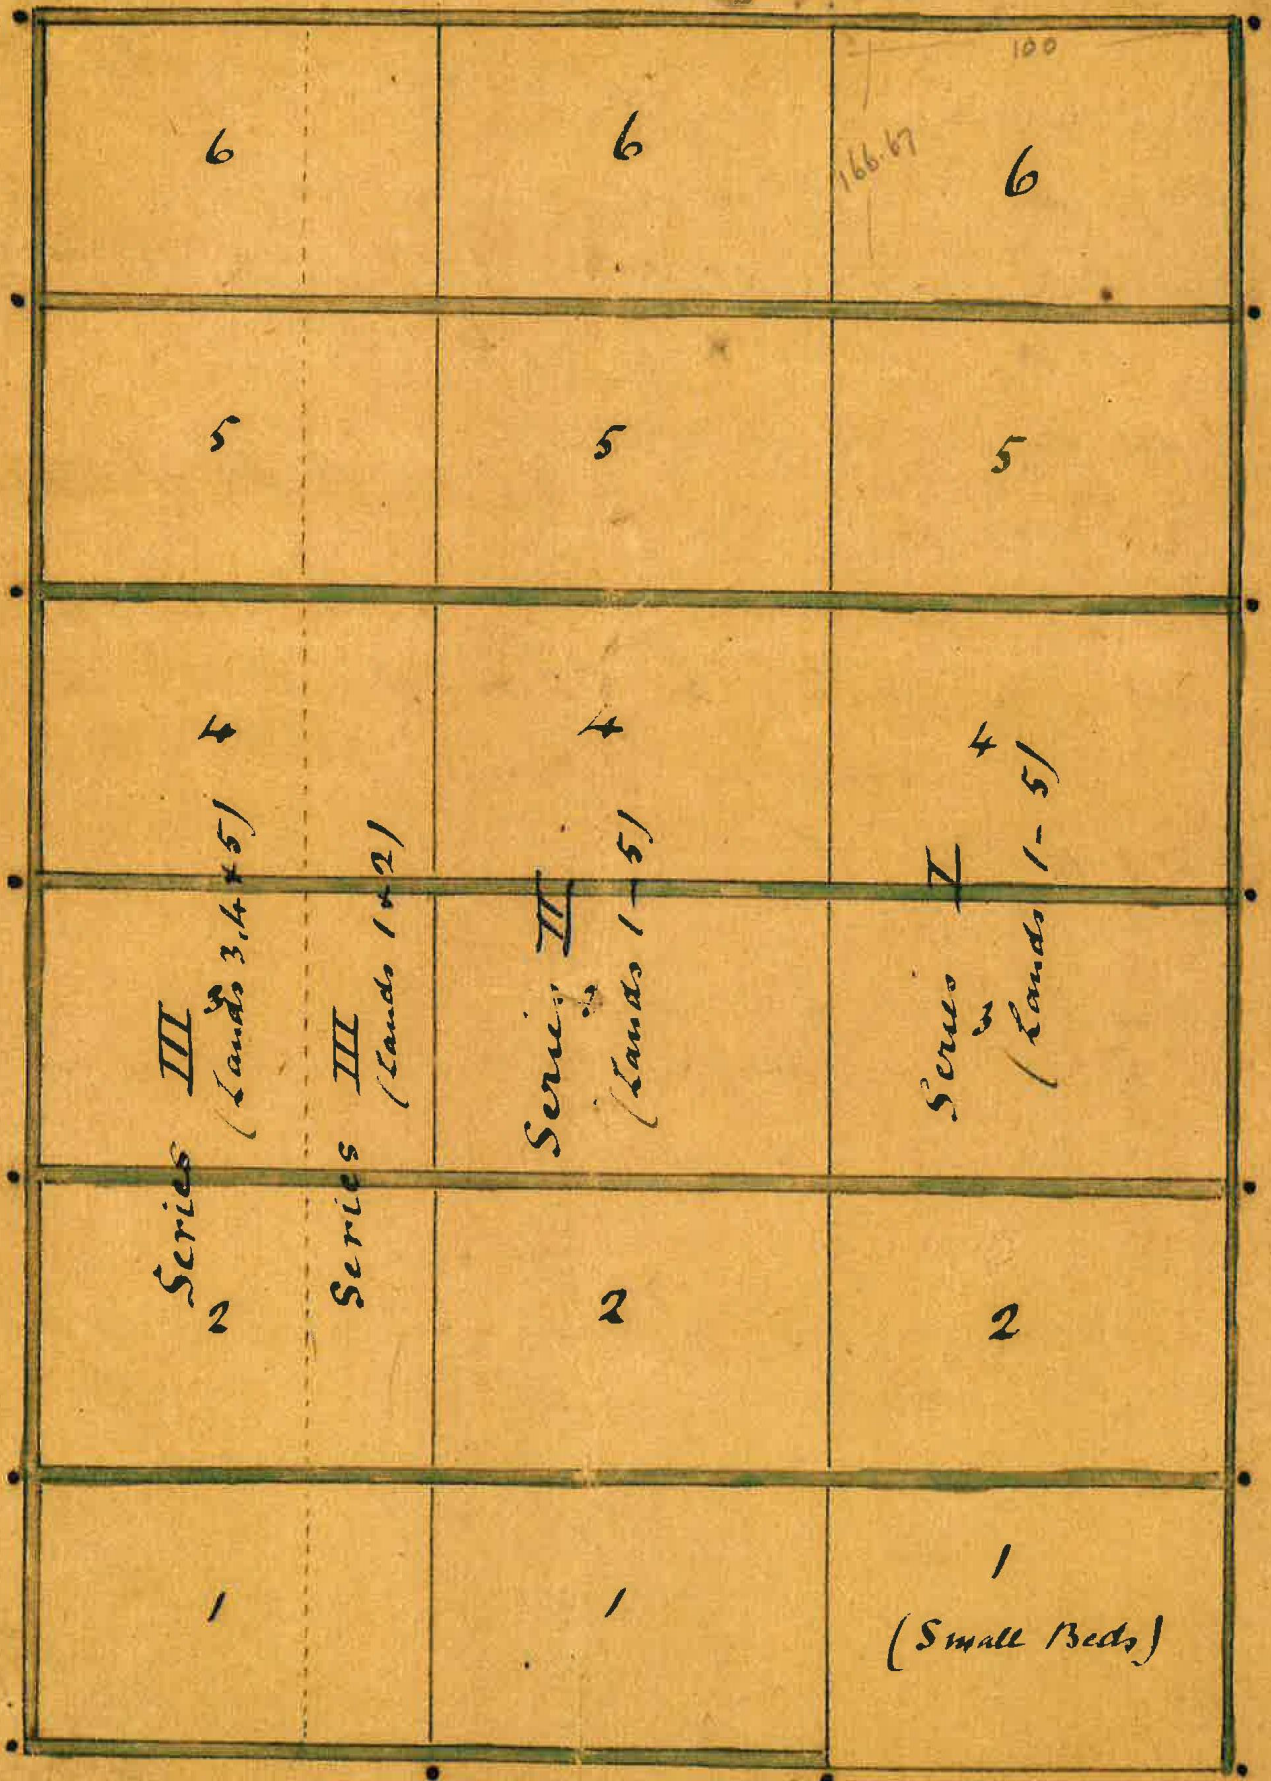 100
166.67
6
6
6
5
5
5
4
4
4
Series III
(Lands 3, 4 & 5)
3
Series III
(Lands 1 & 2)
Series II
3
(Lands 1-5)
Series I
3
(Lands 1-5)
2
2
2
1
1
1
(Small Beds)